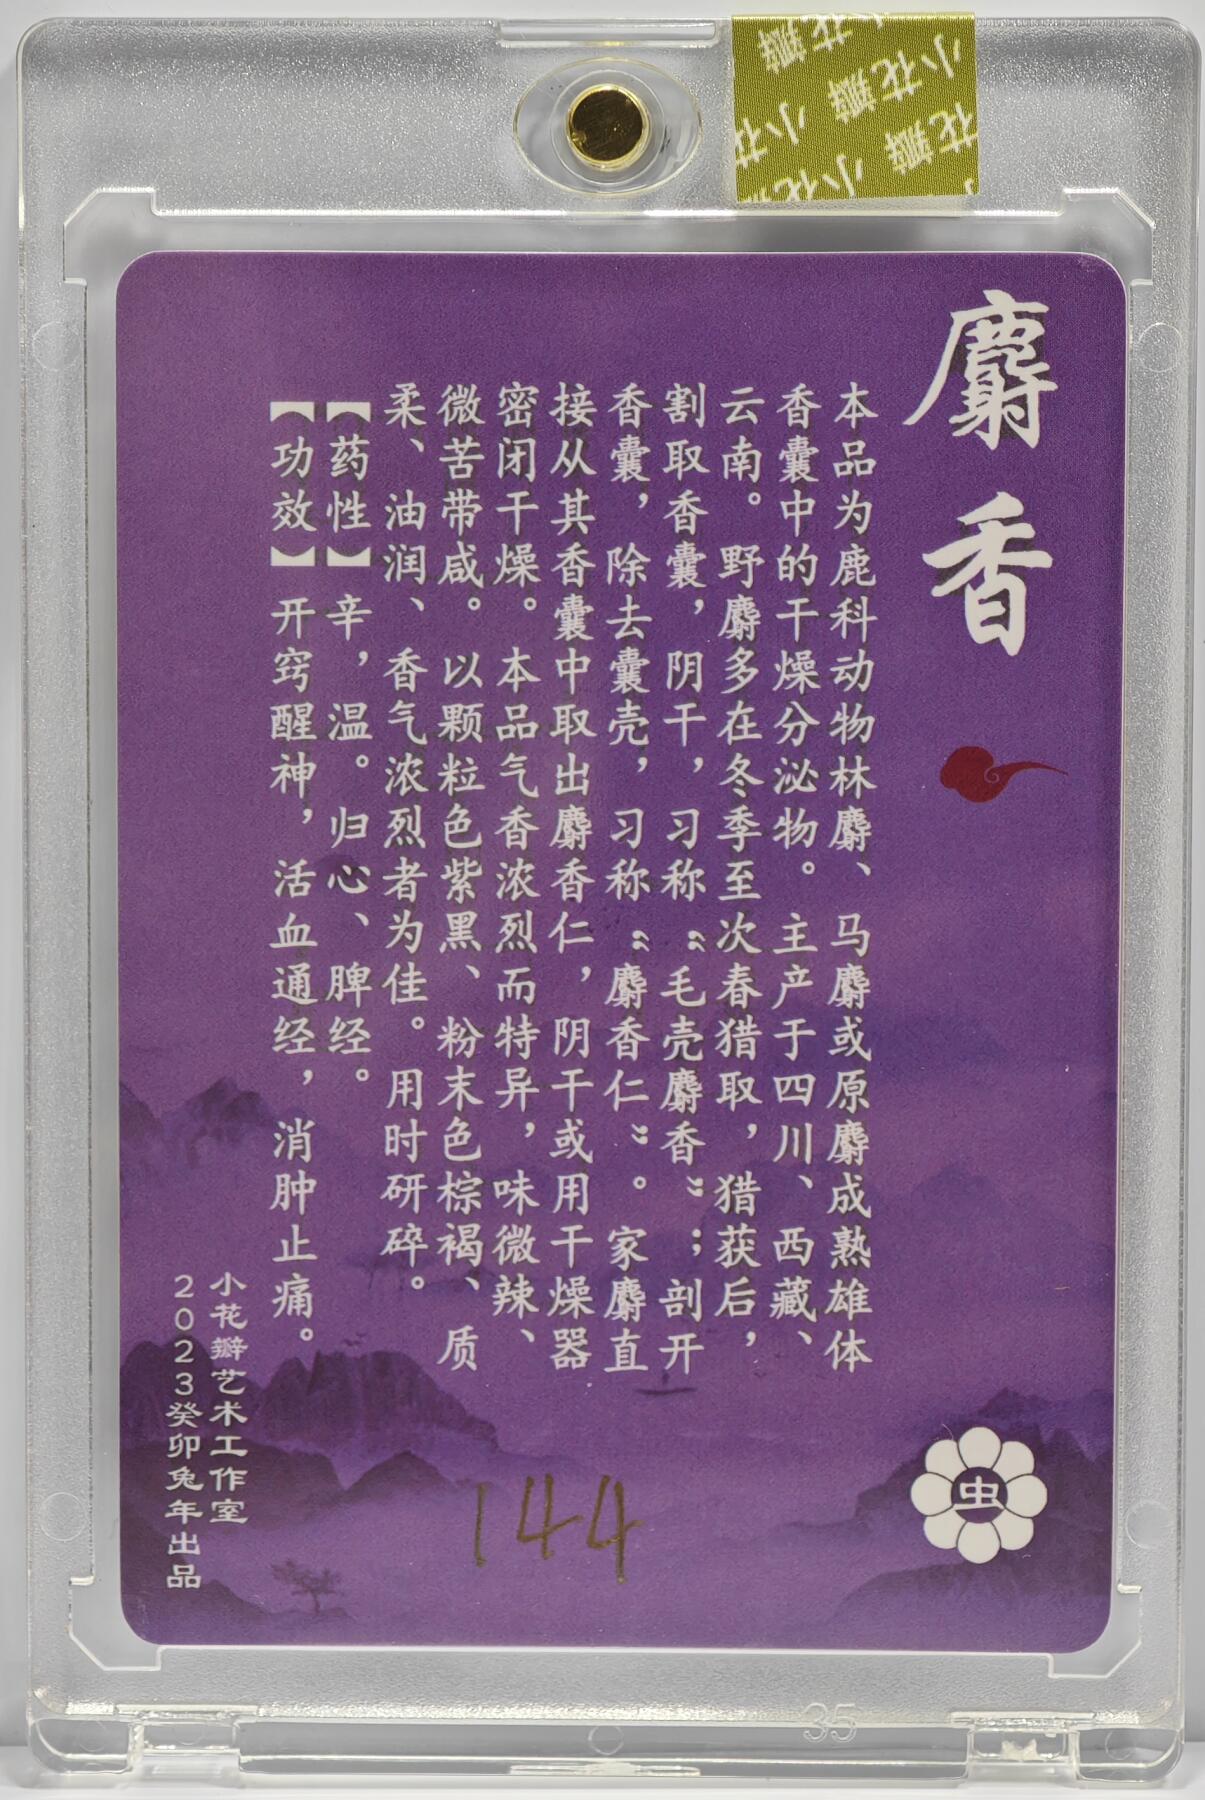 小花瓣
小花瓣
小花瓣
小花瓣
麝香
本品为鹿科动物林麝、马麝或原麝成熟雄体
香囊中的干燥分泌物。主产于四川、西藏、
云南。野麝多在冬季至次春猎取，猎获后，
割取香囊，阴干，习称“毛壳麝香”；剖开
香囊，除去囊壳，习称“麝香仁”。家麝直
接从其香囊中取出麝香仁，阴干或用干燥器
密闭干燥。本品气香浓烈而特异，味微辣、
微苦带咸。以颗粒色紫黑、粉末色棕褐、质
柔、油润、香气浓烈者为佳。用时研碎。
【药性】辛，温。归心、脾经。
【功效】开窍醒神，活血通经，消肿止痛。
小花瓣艺术工作室
2023癸卯兔年出品
虫
144
35